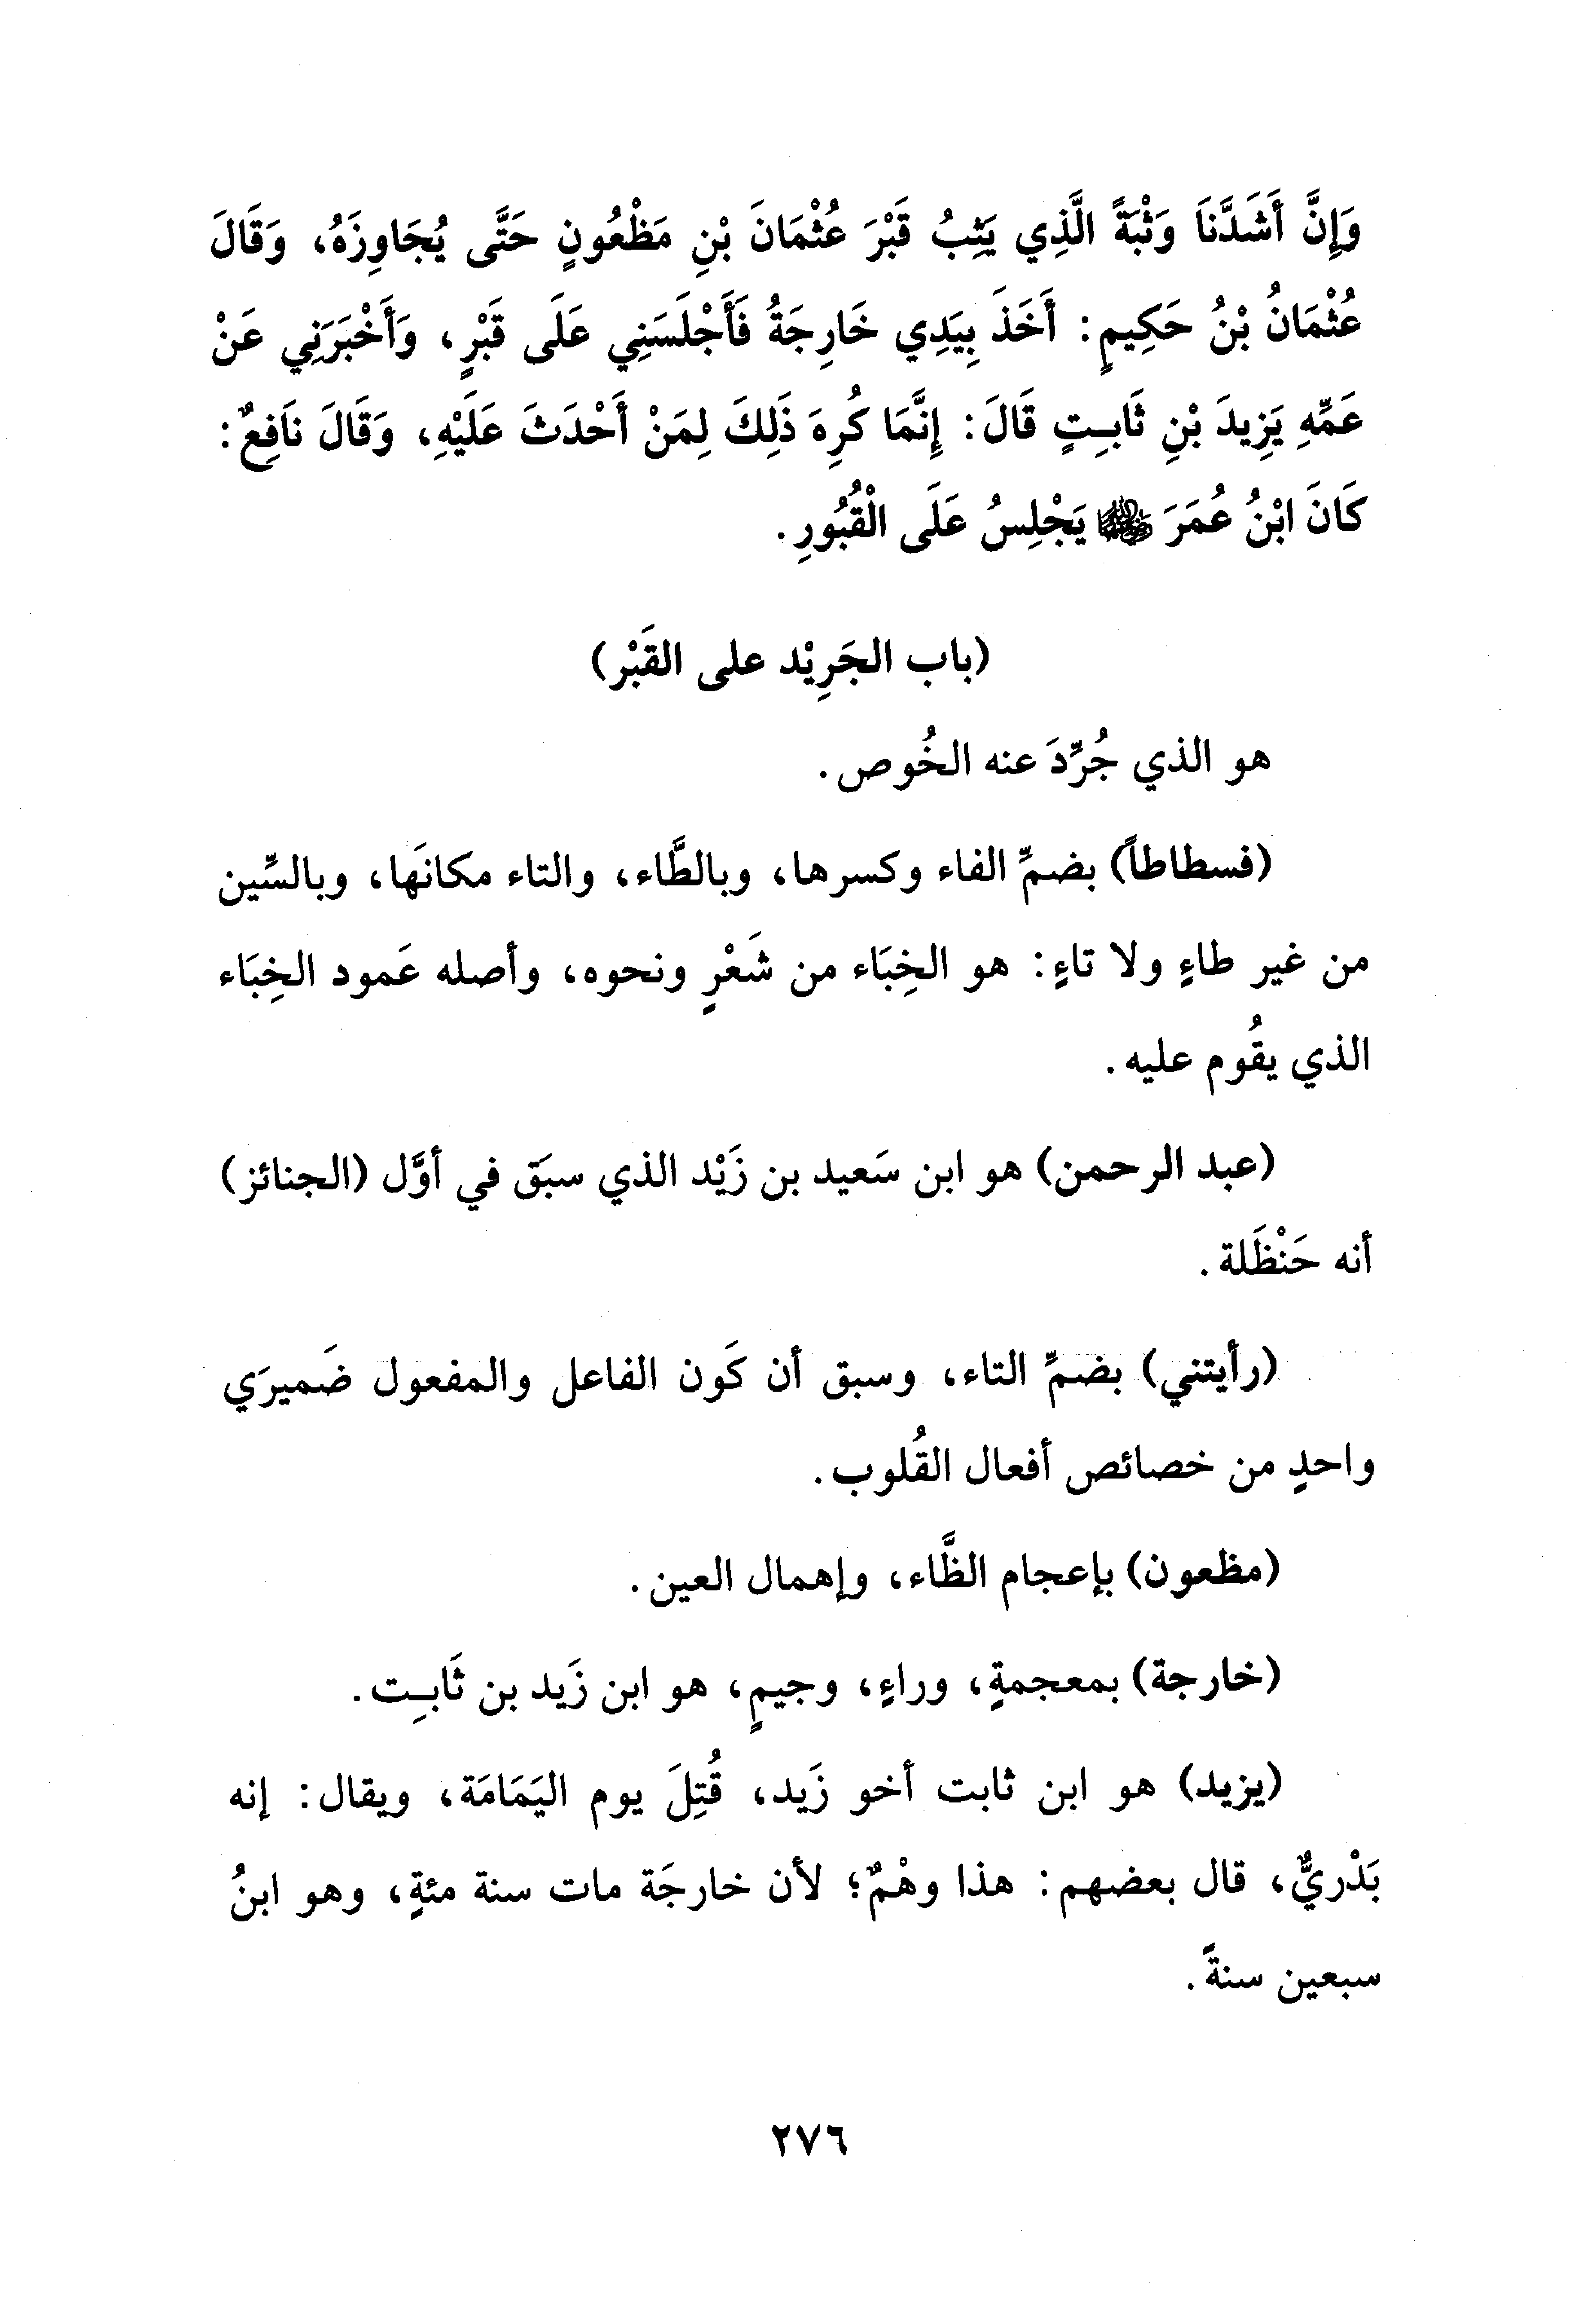 وَإِنَّ أَشَدَّنَا وَثْبَةً الَّذِي يَثِبُ قَبْرَ عُثْمَانَ بْنِ مَظْعُونٍ حَتَّى يُجَاوِزَهُ، وَقَالَ
عُثْمَانُ بْنُ حَكِيمٍ: أَخَذَ بِيَدِي خَارِجَةُ فَأَجْلَسَنِي عَلَى قَبْرٍ، وَأَخْبَرَنِي عَنْ
عَمِّهِ يَزِيدَ بْنِ ثَابِتٍ قَالَ: إِنَّمَا كُرِهَ ذَلِكَ لِمَنْ أَحْدَثَ عَلَيْهِ، وَقَالَ نَافِعٌ:
كَانَ ابْنُ عُمَرَ رضي الله عنهما يَجْلِسُ عَلَى الْقُبُورِ.
(باب الجَرِيْد على القَبْر)
هو الذي جُرِّدَ عنه الخُوص.
(فسطاطاً) بضمِّ الفاء وكسرها، وبالطَّاء، والتاء مكانَها، وبالسِّين
من غير طاءٍ ولا تاءٍ: هو الخِبَاء من شَعْرٍ ونحوه، وأصله عَمود الخِبَاء
الذي يقُوم عليه.
(عبد الرحمن) هو ابن سَعيد بن زَيْد الذي سبَق في أوَّل (الجنائز)
أنه حَنْظَلة.
(رأيتني) بضمِّ التاء، وسبق أن كَون الفاعل والمفعول ضَميرَي
واحدٍ من خصائص أفعال القُلوب.
(مظعون) بإعجام الظَّاء، وإهمال العين.
(خارجة) بمعجمةٍ، وراءٍ، وجيمٍ، هو ابن زَيد بن ثَابِت.
(يزيد) هو ابن ثابت أخو زَيد، قُتِلَ يوم اليَمَامَة، ويقال: إنه
بَدْريٌّ، قال بعضهم: هذا وهْمٌ؛ لأن خارجَة مات سنة مئةٍ، وهو ابنُ
سبعين سنةً.
٢٧٦